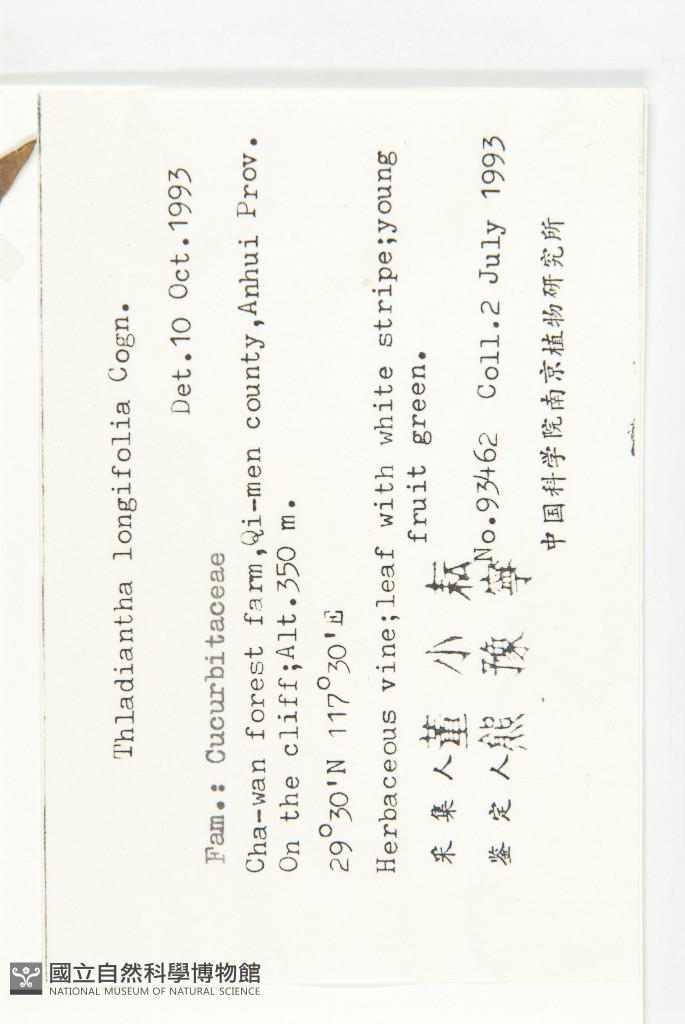 Thladiantha longifolia Cogn.
Det.10 Oct.1993
Fam.: Cucurbitaceae
Cha-wan forest farm,Qi-men county,Anhui Prov.
On the cliff;Alt.350 m.
29°30'N 117°30'E
Herbaceous vine;leaf with white stripe;young
fruit green.
采集人 董小耘
鉴定人 熊豫寧 No.93462 Coll.2 July 1993
中国科学院南京植物研究所
國立自然科學博物館
NATIONAL MUSEUM OF NATURAL SCIENCE